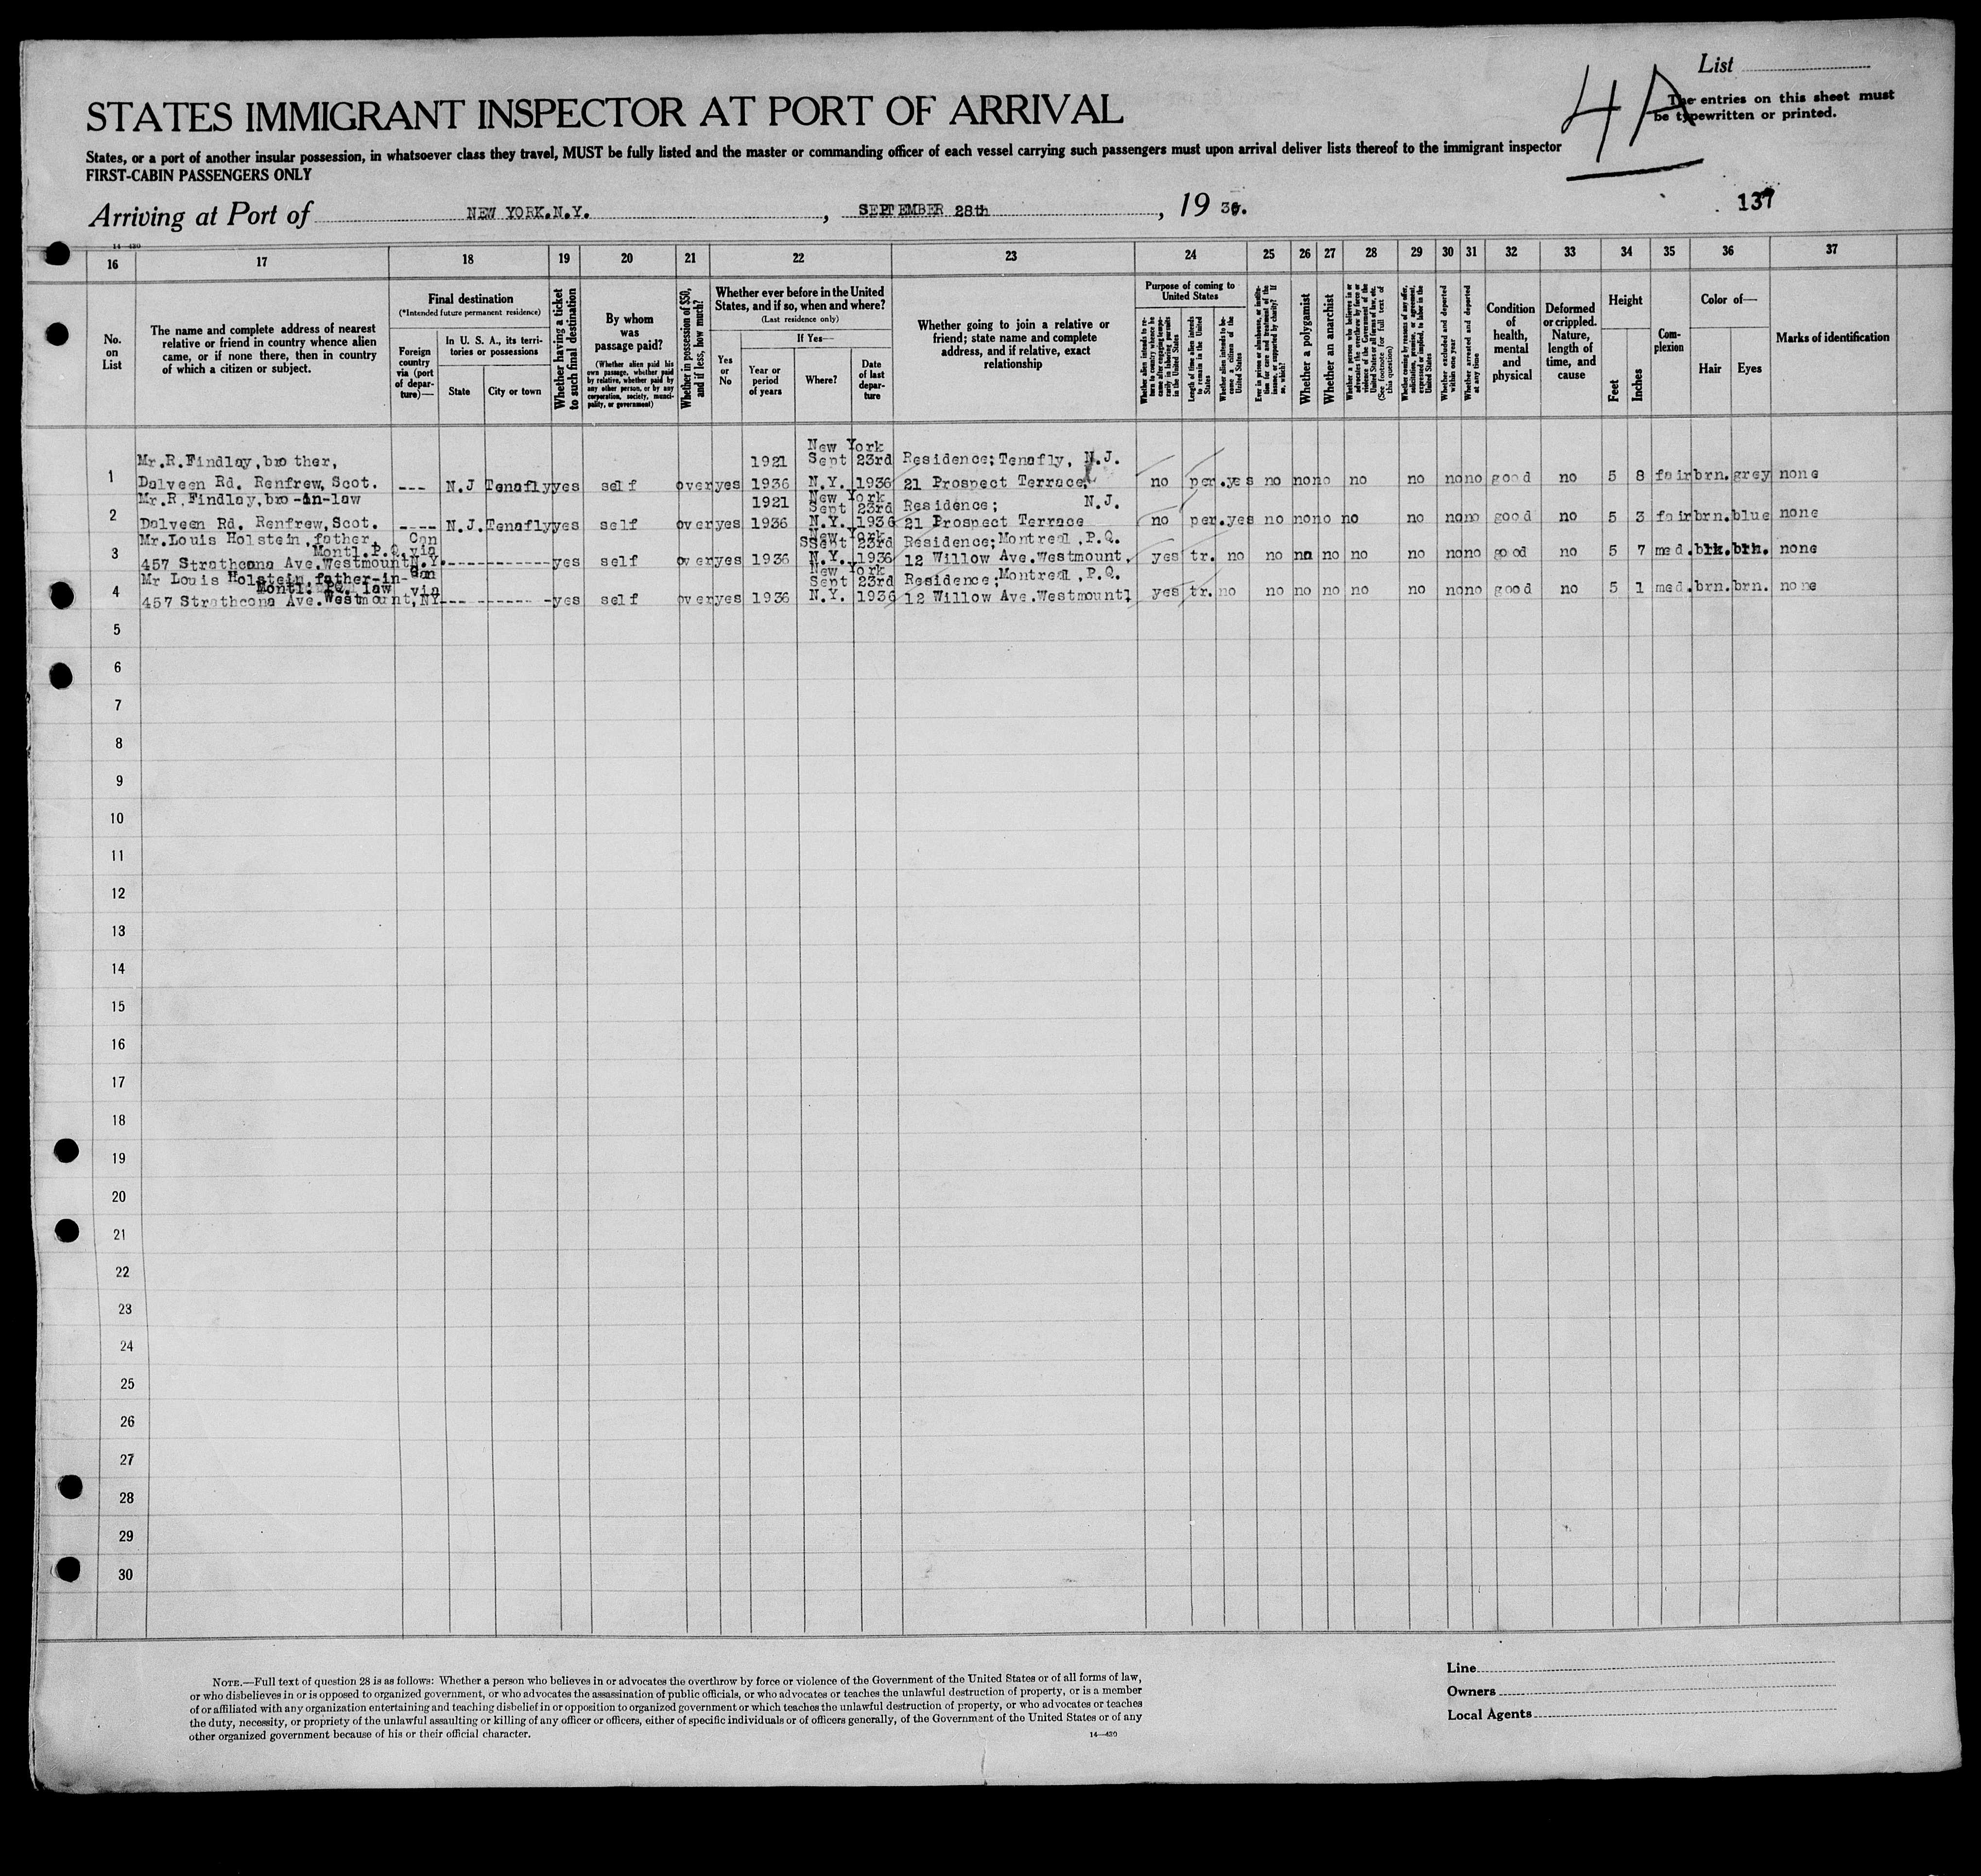 List
4A
The entries on this sheet must
be typewritten or printed.
STATES IMMIGRANT INSPECTOR AT PORT OF ARRIVAL
States, or a port of another insular possession, in whatsoever class they travel, MUST be fully listed and the master or commanding officer of each vessel carrying such passengers must upon arrival deliver lists thereof to the immigrant inspector
FIRST-CABIN PASSENGERS ONLY
Arriving at Port of NEW YORK.N.Y. , SEPTEMBER 28th , 19 36.
137
14-430
16 17 18 19 20 21 22 23 24 25 26 27 28 29 30 31 32 33 34 35 36 37
No. on List
The name and complete address of nearest relative or friend in country whence alien came, or if none there, then in country of which a citizen or subject.
Final destination
(*Intended future permanent residence)
Foreign country via (port of departure)—
In U. S. A., its territories or possessions
State
City or town
Whether having a ticket to such final destination
By whom was passage paid?
(Whether alien paid his own passage, whether paid by relative, whether paid by any other person, or by any corporation, society, municipality, or government)
Whether in possession of $50, and if less, how much?
Whether ever before in the United States, and if so, when and where?
(Last residence only)
Yes or No
If Yes—
Year or period of years
Where?
Date of last departure
Whether going to join a relative or friend; state name and complete address, and if relative, exact relationship
Purpose of coming to United States
Whether alien intends to return to country whence he came after engaging temporarily in laboring pursuits in the United States
Length of time alien intends to remain in the United States
Whether alien intends to become a citizen of the United States
Ever in prison or almshouse, or institution for care and treatment of the insane, or supported by charity? If so, which?
Whether a polygamist
Whether an anarchist
(See footnote for full text of this question)
Whether coming by reason of any offer, solicitation, promise, or agreement, expressed or implied, to labor in the United States
Whether excluded and deported within one year
Whether arrested and deported at any time
Condition of health, mental and physical
Deformed or crippled. Nature, length of time, and cause
Height
Feet
Inches
Complexion
Color of—
Hair
Eyes
Marks of identification
Mr.R.Findlay,bro ther, 1921 New York Sept 23rd Residence;Tenafly, N.J.
1 Dalveen Rd. Renfrew, Scot. --- N.J Tenafly yes self over yes 1936 N.Y. 1936 21 Prospect Terrace, no per. yes no no no no no no no good no 5 8 fair brn. grey none
Mr.R.Findlay,bro-in-law 1921 New York Sept 23rd Residence; N.J.
2 Dalveen Rd. Renfrew,Scot. ---- N.J. Tenafly yes self over yes 1936 N.Y. 1936 21 Prospect Terrace no per. yes no no no no no no no good no 5 3 fair brn. blue none
Mr.Louis Holstein,father, Can New York Sept 23rd Residence;Montreal,P.Q.
Montl.P.Q. via
3 457 Strathcona Ave.Westmount N.Y. ---------- yes self over yes 1936 N.Y. 1936 12 Willow Ave.Westmount. yes tr. no no no no no no no no good no 5 7 med. brn. none
Mr Louis Holstein,father-in- Can New York Sept 23rd Residence;Montreal,P.Q.
Montl. P.Q. law via
4 457 Strathcona Ave.Westmount,NY --- ------ yes self over yes 1936 N.Y. 1936 12 Willow Ave.Westmount yes tr. no no no no no no no no good no 5 1 med. brn. brn. none
5
6
7
8
9
10
11
12
13
14
15
16
17
18
19
20
21
22
23
24
25
26
27
28
29
30
NOTE.—Full text of question 28 is as follows: Whether a person who believes in or advocates the overthrow by force or violence of the Government of the United States or of all forms of law,
or who disbelieves in or is opposed to organized government, or who advocates the assassination of public officials, or who advocates or teaches the unlawful destruction of property, or is a member
of or affiliated with any organization entertaining and teaching disbelief in or opposition to organized government or which teaches the unlawful destruction of property, or who advocates or teaches
the duty, necessity, or propriety of the unlawful assaulting or killing of any officer or officers, either of specific individuals or of officers generally, of the Government of the United States or of any
other organized government because of his or their official character.
14—430
Line
Owners
Local Agents